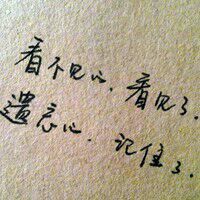 看不见的,看见了.
遗忘的,记住了.